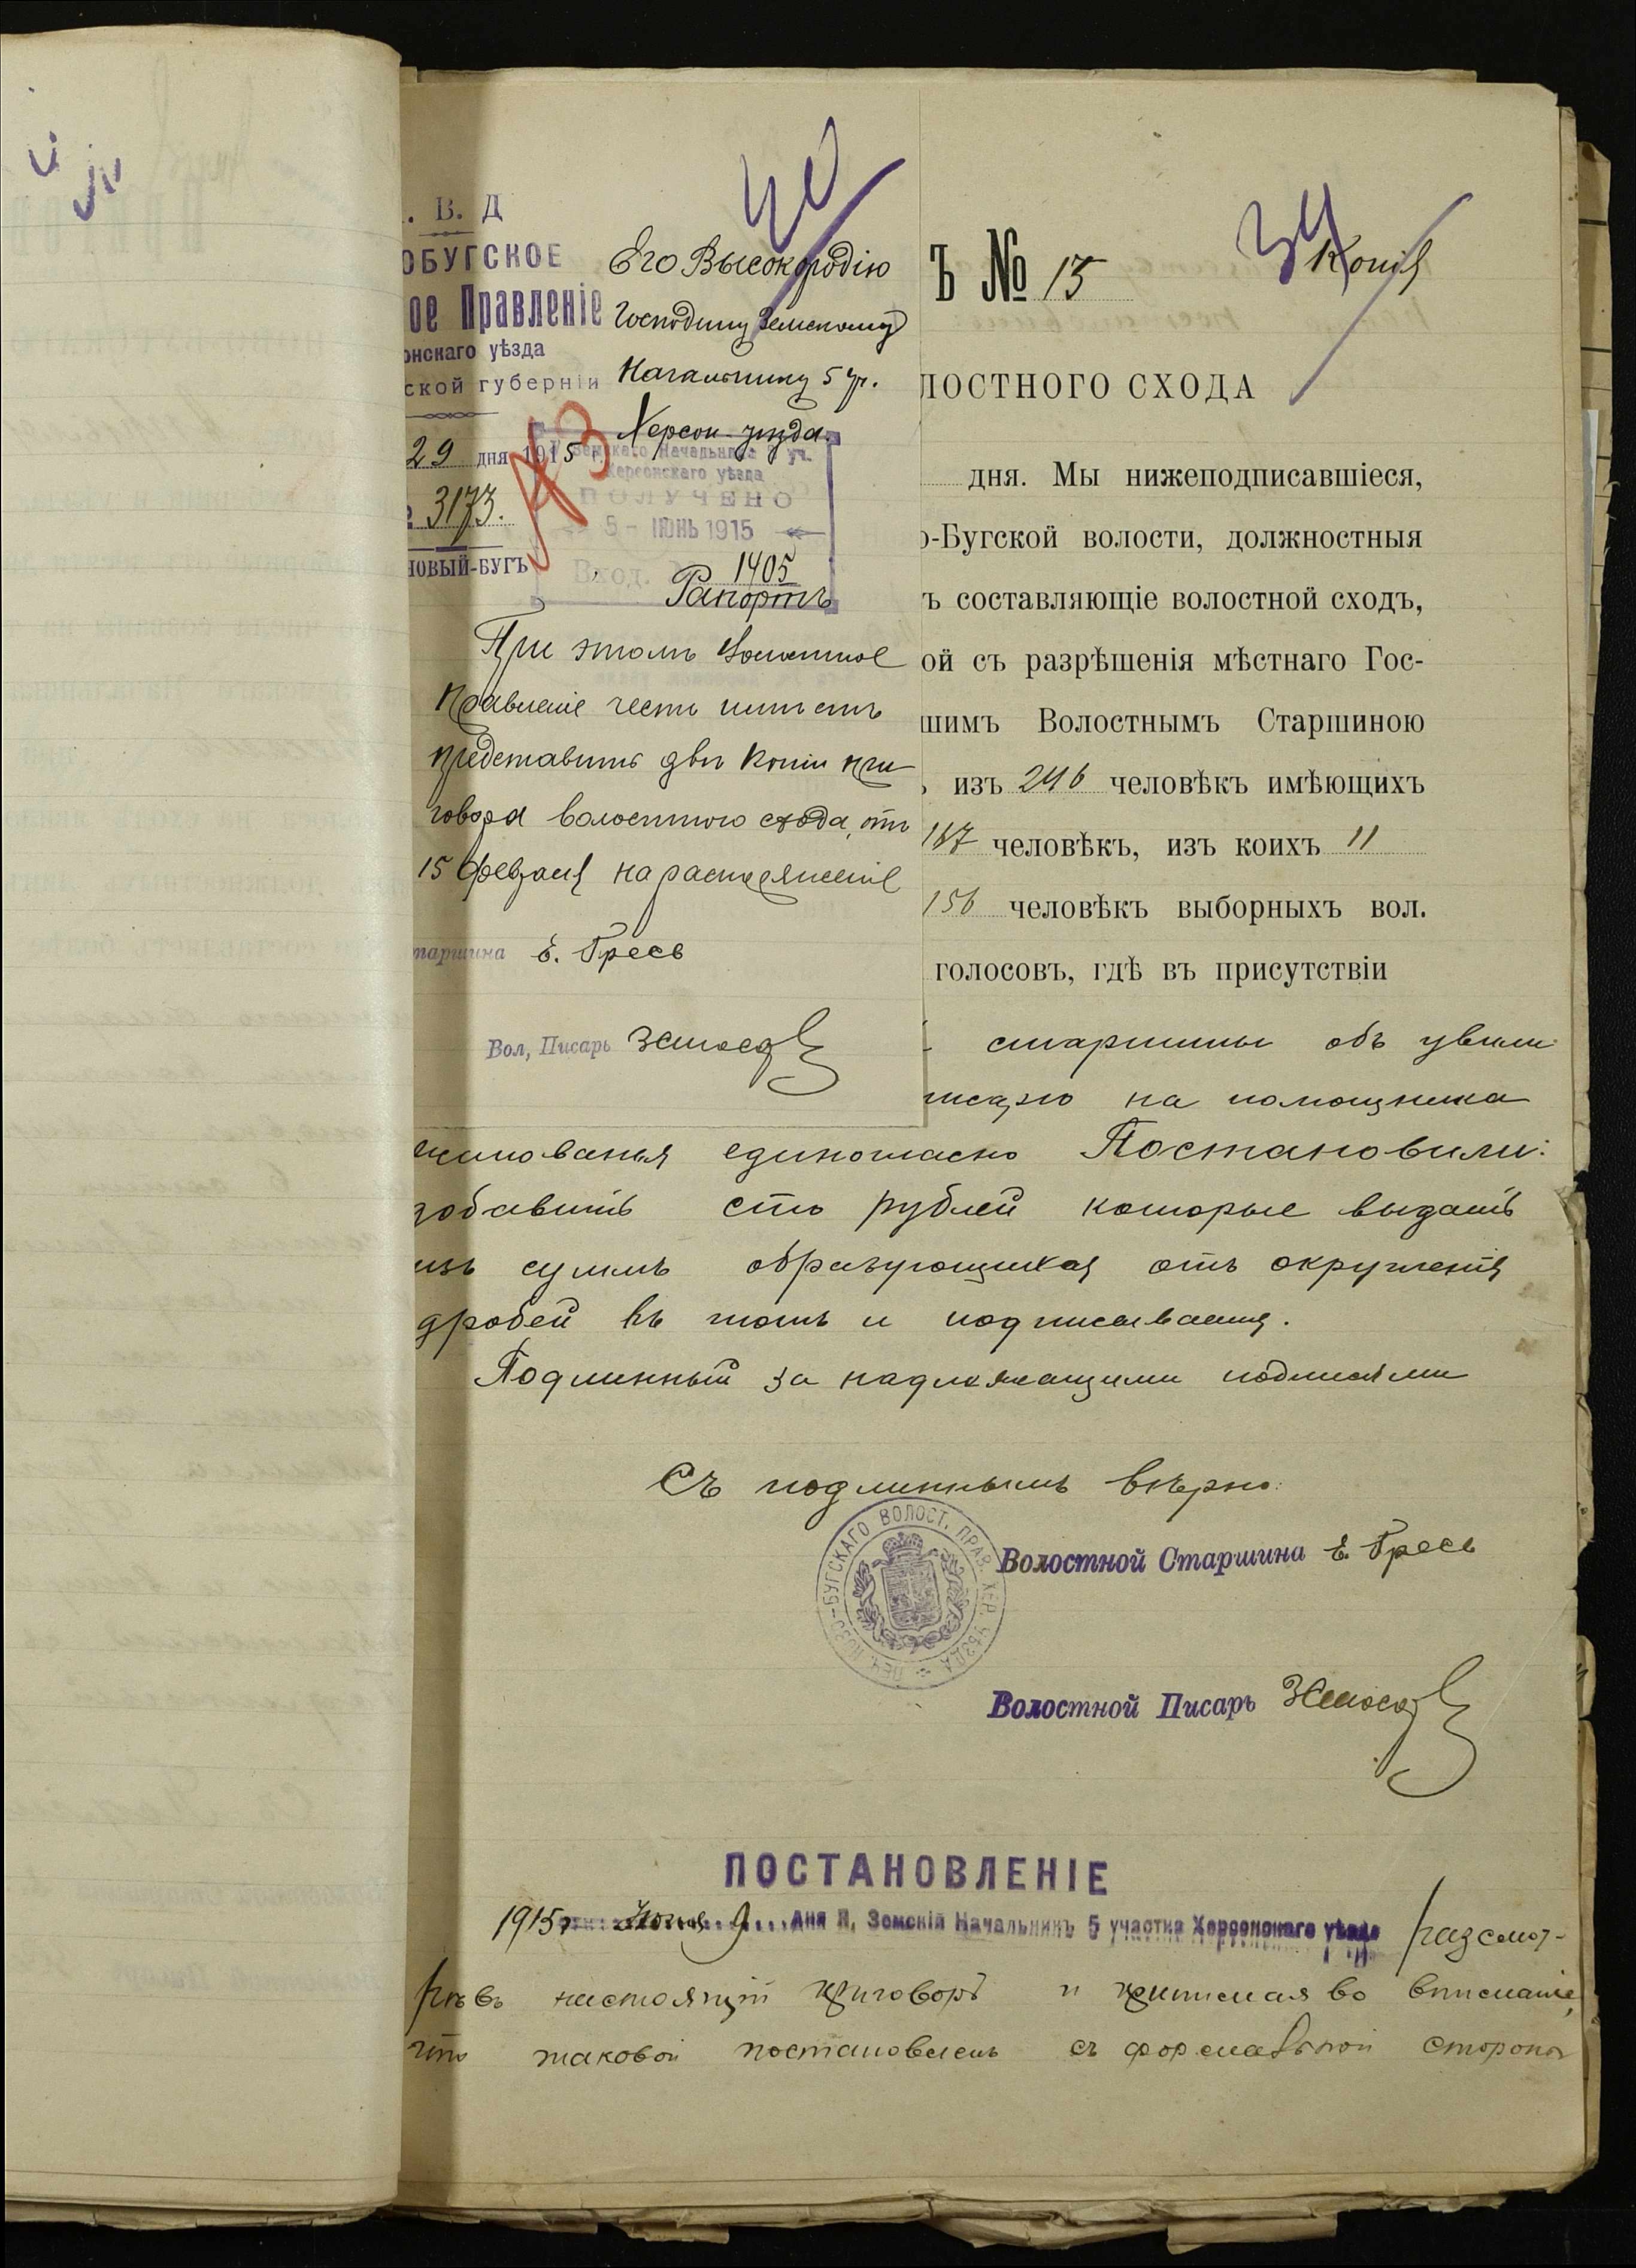 40
. В. Д
ОБУГСКОЕ
ое Правленіе
онскаго уѣзда
ской губерніи
29 дня 1915
3173.
НОВЫЙ-БУГЪ
Его Высокородію
Господину Земскому
Начальнику 5 уч.
Херсон. уѣзда.
Земскаго Начальника уч.
Херсонскаго уѣзда
ПОЛУЧЕНО
5 - ІЮНЬ 1915
Вход. 1405
Рапортъ
При этомъ Волостное
Правленіе честь имѣетъ
представить двѣ копіи при
говора волостного схода, отъ
15 февраля на распоряженіе
таршина Е. Гресь
Вол, Писарь
34
Копія
Ъ № 15
ЛОСТНОГО СХОДА
дня. Мы нижеподписавшіеся,
о-Бугской волости, должностныя
ъ составляющіе волостной сходъ,
ой съ разрѣшенія мѣстнаго Гос-
шимъ Волостнымъ Старшиною
изъ 246 человѣкъ имѣющихъ
167 человѣкъ, изъ коихъ 11
156 человѣкъ выборныхъ вол.
голосовъ, гдѣ въ присутствіи
старшины объ увели
писарю на помощника
жалованья единогласно Постановили:
добавить сто рублей которые выдать
изъ суммъ образующихся отъ округленія
дробей въ томъ и подписываемся.
Подлинный за надлежащими подписями
Съ подлиннымъ вѣрно:
ПЕЧ. НОВО-БУГСКАГО ВОЛОСТ. ПРАВ. ХЕР. УѢЗДА
Волостной Старшина Е. Гресь
Волостной Писарь
ПОСТАНОВЛЕНІЕ
1915 г. Іюня 9 дня Я, Земскій Начальникъ 5 участка Херсонскаго уѣзда разсмот-
рѣвъ настоящій приговоръ и принимая во вниманіе,
что таковой постановленъ съ формальной стороны